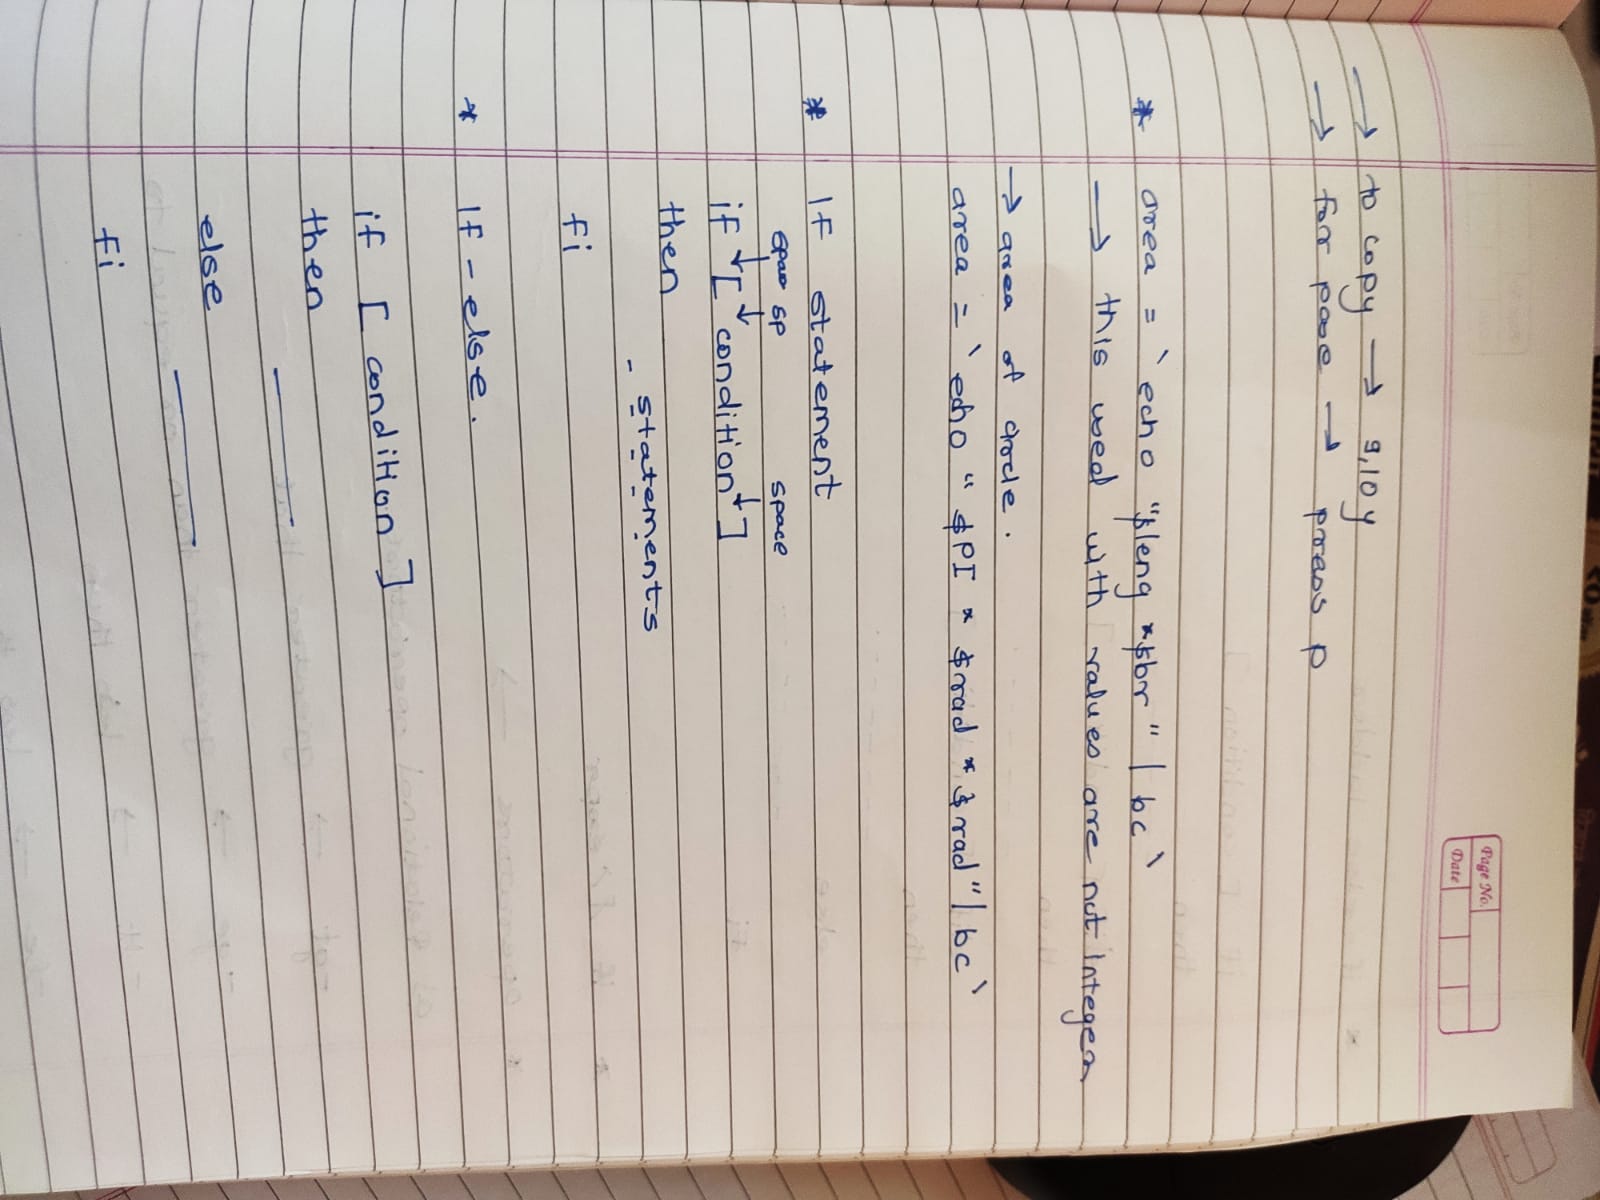 Page No.
Date
→ to copy → 9,10 y
→ for pase → press p
* area = `echo "$leng *$br" | bc`
→ this used with values are not Integer
→ area of circle.
area = `echo "$PI * $rad * $rad"| bc`
* If statement
space sp space
if [ condition ]
then
- statements
fi
* If - else.
if [ condition ]
then
else
fi